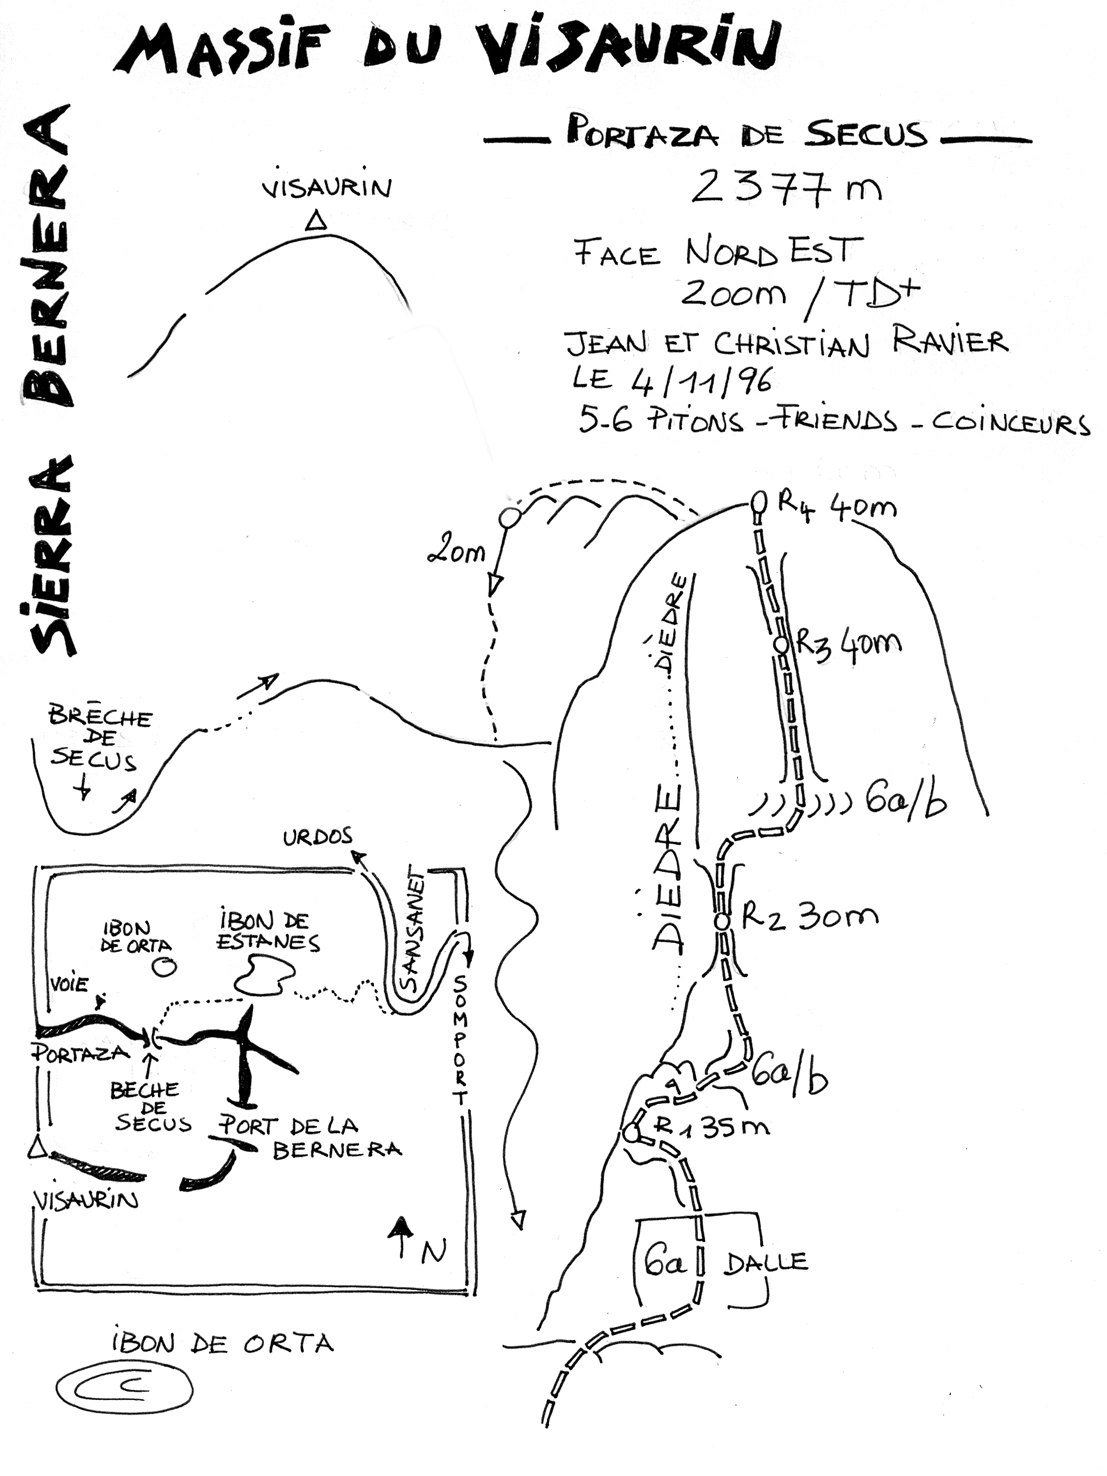 MASSIF DU VISAURIN
SIERRA BERNERA
PORTAZA DE SECUS
2377 m
FACE NORD EST
200m / TD+
JEAN ET CHRISTIAN RAVIER
LE 4/11/96
5-6 PITONS - FRIENDS - COINCEURS
VISAURIN
R4 40m
20m
DIÈDRE
R3 40m
BRÈCHE
DE
SECUS
6a/b
DIÈDRE
R2 30m
6a/b
R1 35m
6a
DALLE
URDOS
SANSANET
SOMPORT
IBON
DE ORTA
IBON DE
ESTANES
VOIE
PORTAZA
BECHE
DE
SECUS
PORT DE LA
BERNERA
VISAURIN
N
IBON DE ORTA